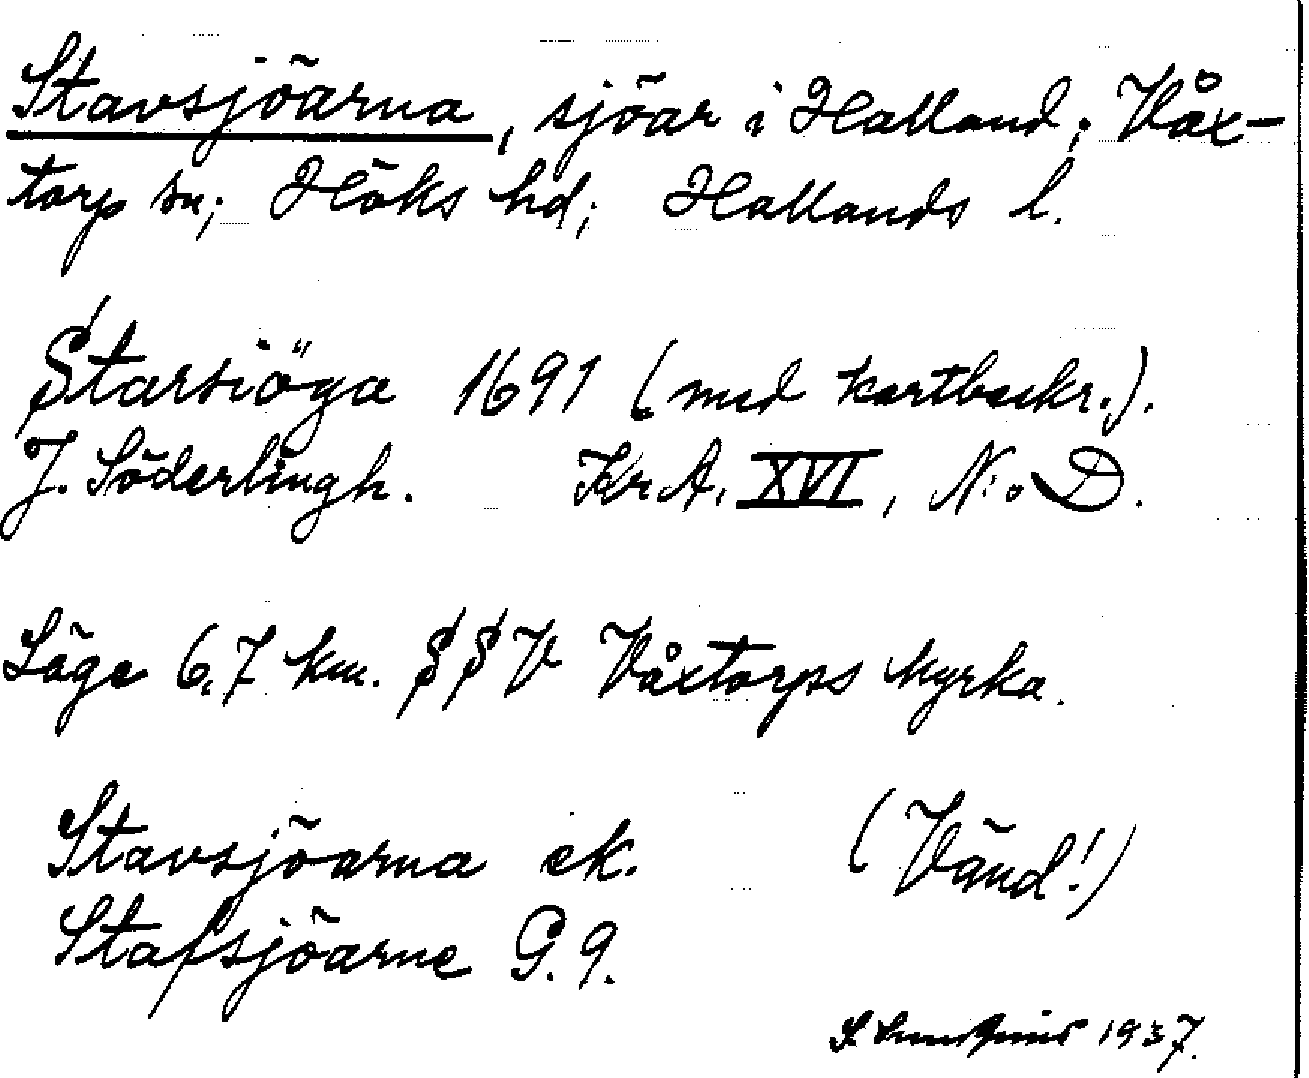 Stavsjöarna, sjöar i Halland; Våx-
torp sn; Höks hd; Hallands l.
Starsiöga 1691 (med kartbeskr.).
J. Söderlingh. Kr A. XVI, N:o D.
Läge 6,7 km. SSV Våxtorps kyrka.
Stavsjöarna ek. (Vänd!)
Stafsjöarne G. 9.
1937.